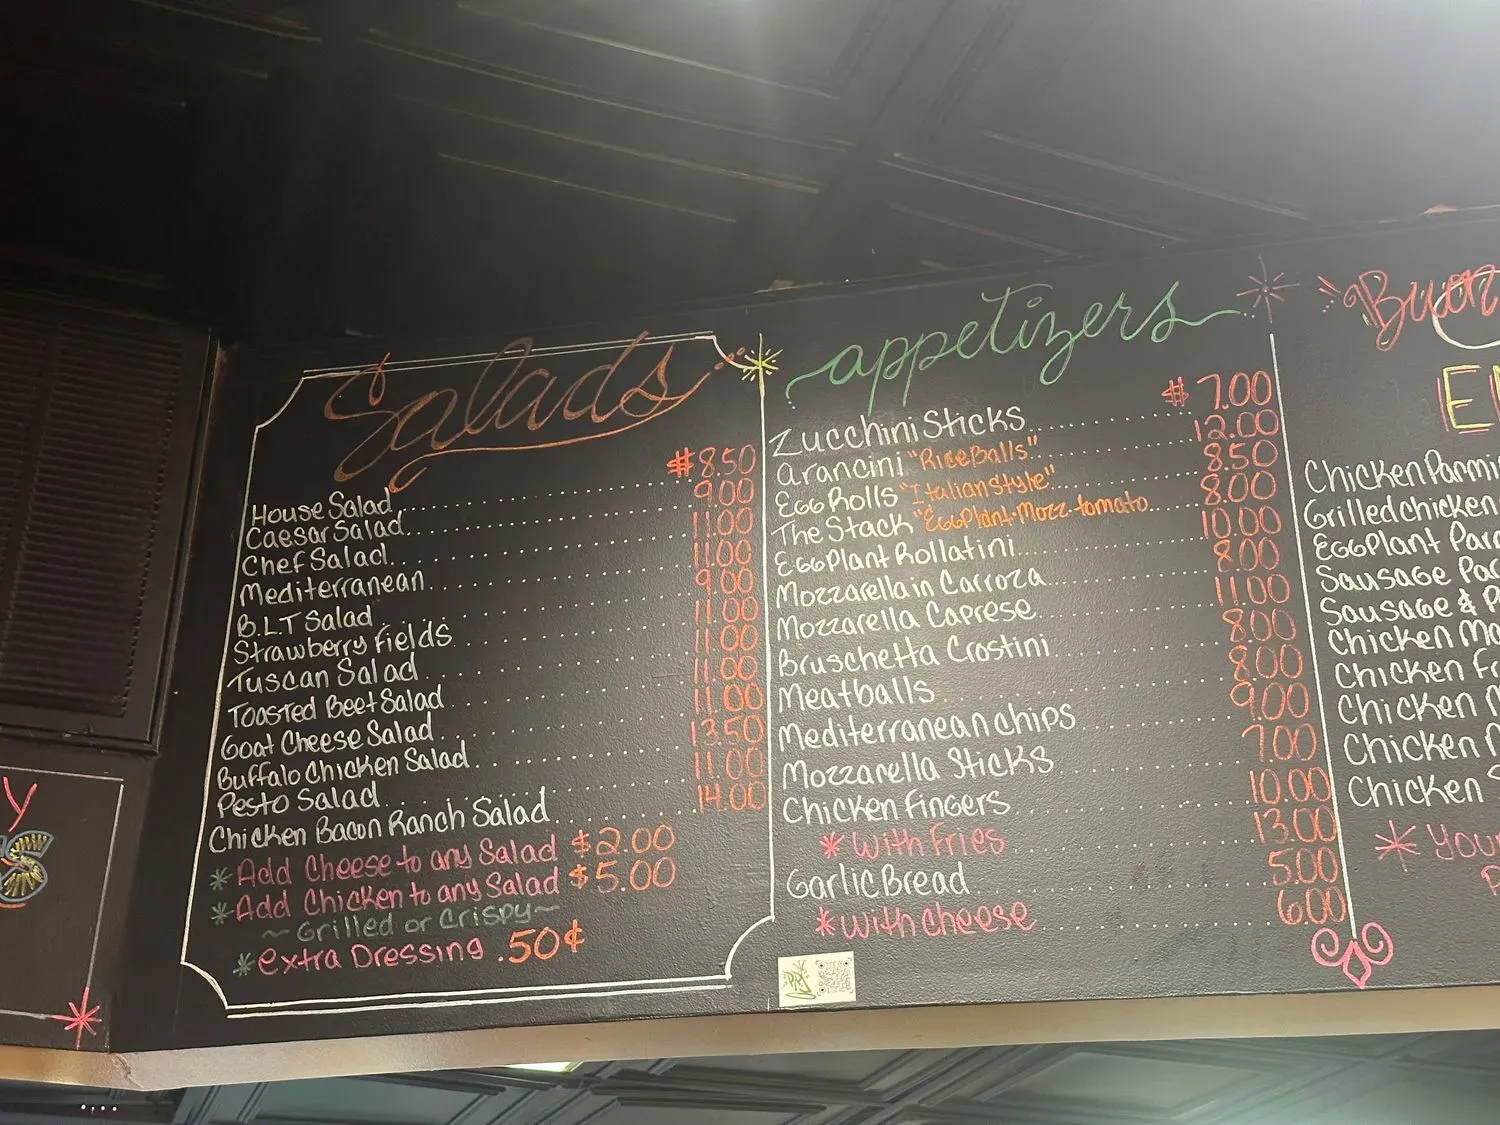 Salads
House Salad $8.50
Caesar Salad 9.00
Chef Salad 11.00
Mediterranean 11.00
B.L.T Salad 9.00
Strawberry Fields 11.00
Tuscan Salad 11.00
Toasted Beet Salad 11.00
Goat Cheese Salad 11.00
Buffalo Chicken Salad 13.50
Pesto Salad 11.00
Chicken Bacon Ranch Salad 14.00
*Add Cheese to any Salad $2.00
*Add Chicken to any Salad $5.00
~Grilled or Crispy~
*extra Dressing .50¢
appetizers
Zucchini Sticks $7.00
Arancini "Rice Balls" 12.00
Egg Rolls "Italian Style" 8.50
The Stack "EggPlant-Mozz-tomato 8.00
EggPlant Rollatini 10.00
Mozzarella in Carroza 8.00
Mozzarella Caprese 11.00
Bruschetta Crostini 8.00
Meatballs 8.00
Mediterranean chips 9.00
Mozzarella Sticks 7.00
Chicken Fingers 10.00
*With Fries 13.00
Garlic Bread 5.00
*With cheese 6.00
Chicken
Grilled chicken
EggPlant
Sausage
Sausage &
Chicken
Chicken
Chicken
Chicken
Chicken